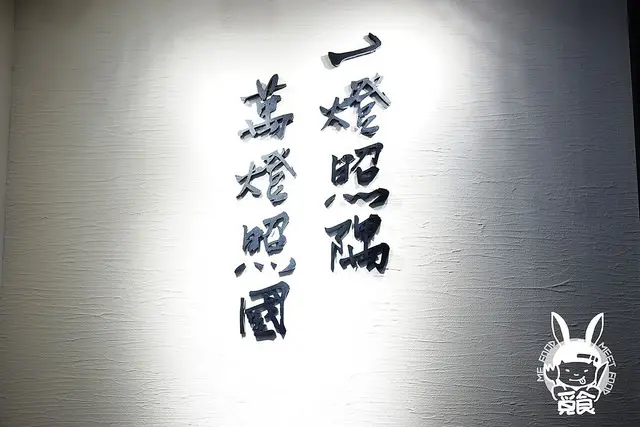 一燈照隅
萬燈照國
ME FOOD MEET FOOD
覓食